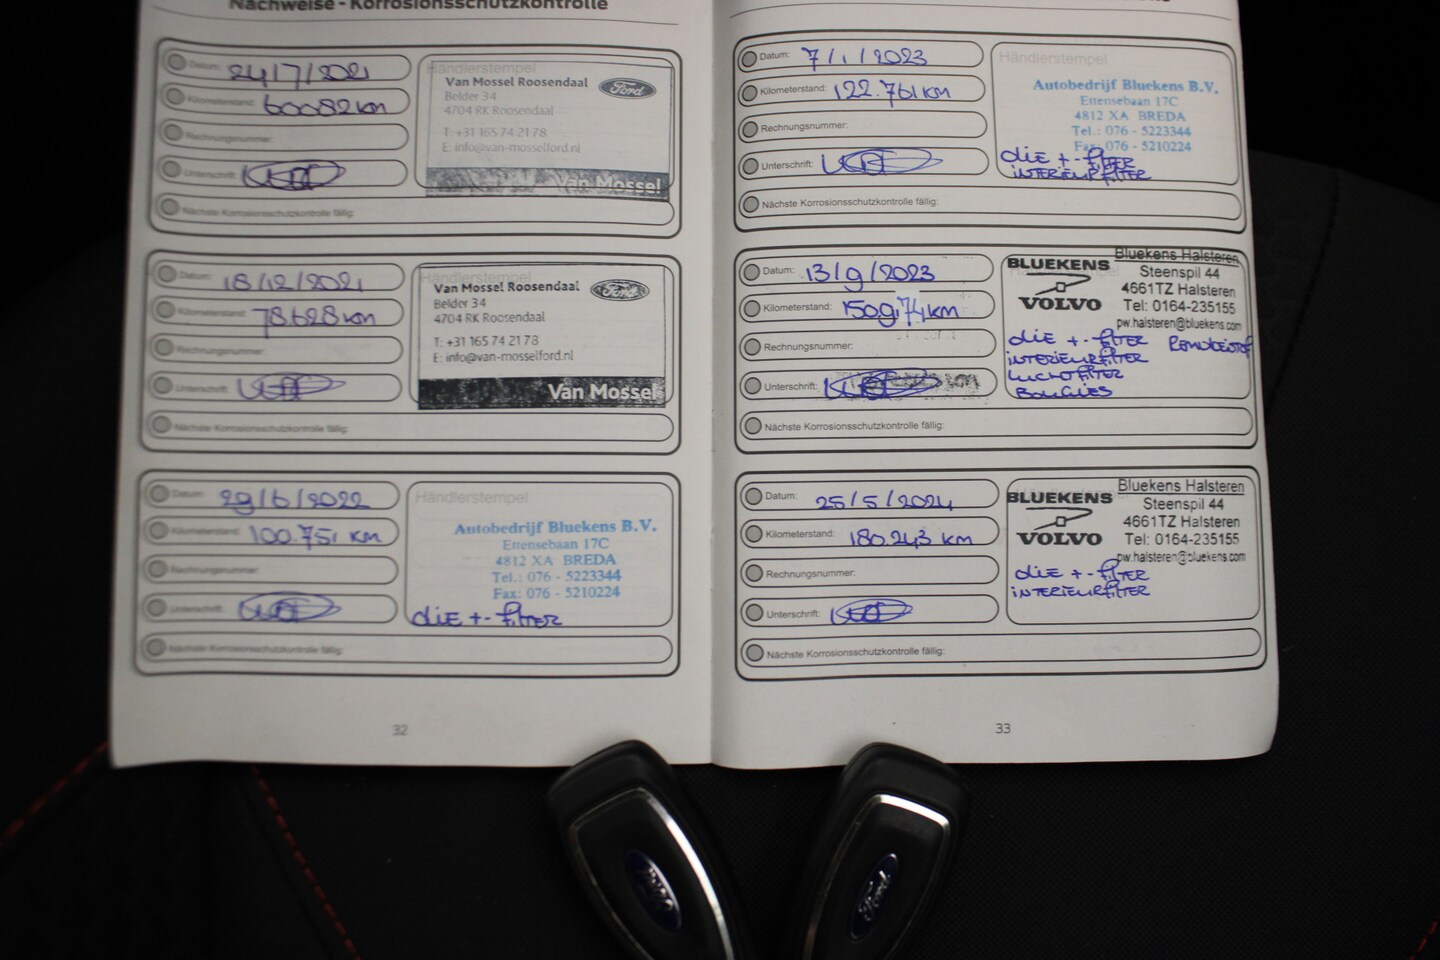 Nachweise - Korrosionsschutzkontrolle
Datum: 24/7/2021
Kilometerstand: 60082 km
Rechnungsnummer:
Unterschrift:
Nächste Korrosionsschutzkontrolle fällig:
Händlerstempel
Van Mossel Roosendaal
Ford
Belder 34
4704 RK Roosendaal
T: +31 165 74 21 78
E: info@van-mosselford.nl
Van Mossel
Datum: 18/12/2021
Kilometerstand: 78.628 km
Rechnungsnummer:
Unterschrift:
Nächste Korrosionsschutzkontrolle fällig:
Händlerstempel
Van Mossel Roosendaal
Ford
Belder 34
4704 RK Roosendaal
T: +31 165 74 21 78
E: info@van-mosselford.nl
Van Mossel
Datum: 29/6/2022
Kilometerstand: 100.751 km
Rechnungsnummer:
Unterschrift:
Nächste Korrosionsschutzkontrolle fällig:
Händlerstempel
Autobedrijf Bluekens B.V.
Ettensebaan 17C
4812 XA BREDA
Tel.: 076 - 5223344
Fax: 076 - 5210224
olie + filter
32
Datum: 7/1/2023
Kilometerstand: 122.761 km
Rechnungsnummer:
Unterschrift:
Nächste Korrosionsschutzkontrolle fällig:
Händlerstempel
Autobedrijf Bluekens B.V.
Ettensebaan 17C
4812 XA BREDA
Tel.: 076 - 5223344
Fax: 076 - 5210224
olie + filter
interieurfilter
Datum: 13/9/2023
Kilometerstand: 150.974 km
Rechnungsnummer:
Unterschrift:
Nächste Korrosionsschutzkontrolle fällig:
BLUEKENS
VOLVO
Bluekens Halsteren
Steenspil 44
4661TZ Halsteren
Tel: 0164-235155
pw.halsteren@bluekens.com
olie + filter Remvloeistof
interieurfilter
luchtfilter
Bougies
Datum: 25/5/2024
Kilometerstand: 180.243 km
Rechnungsnummer:
Unterschrift:
Nächste Korrosionsschutzkontrolle fällig:
BLUEKENS
VOLVO
Bluekens Halsteren
Steenspil 44
4661TZ Halsteren
Tel: 0164-235155
pw.halsteren@bluekens.com
olie + filter
interieurfilter
33
Ford
Ford